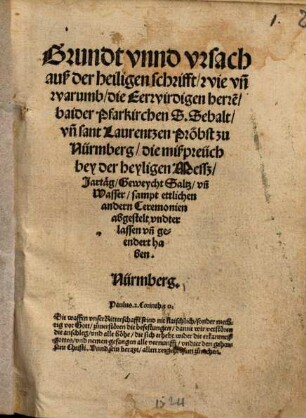 Grundt vnnd vrsach
auß der heiligen schrifft / wie vñ
warumb / die Eerwirdigen herrē /
baider Pfarkirchen S. Sebalt /
vñ sant Laurentzen Pröbst zu
Nürmberg / die mißpreüch
bey der heyligen Mess /
Jartäg / Geweycht Saltz / vñ
Wasser / sampt ettlichen
andern Ceremonien
abgestelt, vndter
lassen vñ ge-
endert ha
ben.
Nürmberg.
Paulus. 2. Corinth. 10.
Die waffen vnser Ritterschafft seind nit flaischlich / sonder mech
tig vor Gott / zuuerstören die befestungen / damit wir verstören
die anschleg / vnd alle höhe / die sich erhebt wider die erkantnuß
gottes / vnd nemen gefangen alle vernunfft / vndter den gehor
sam Christi.
1524